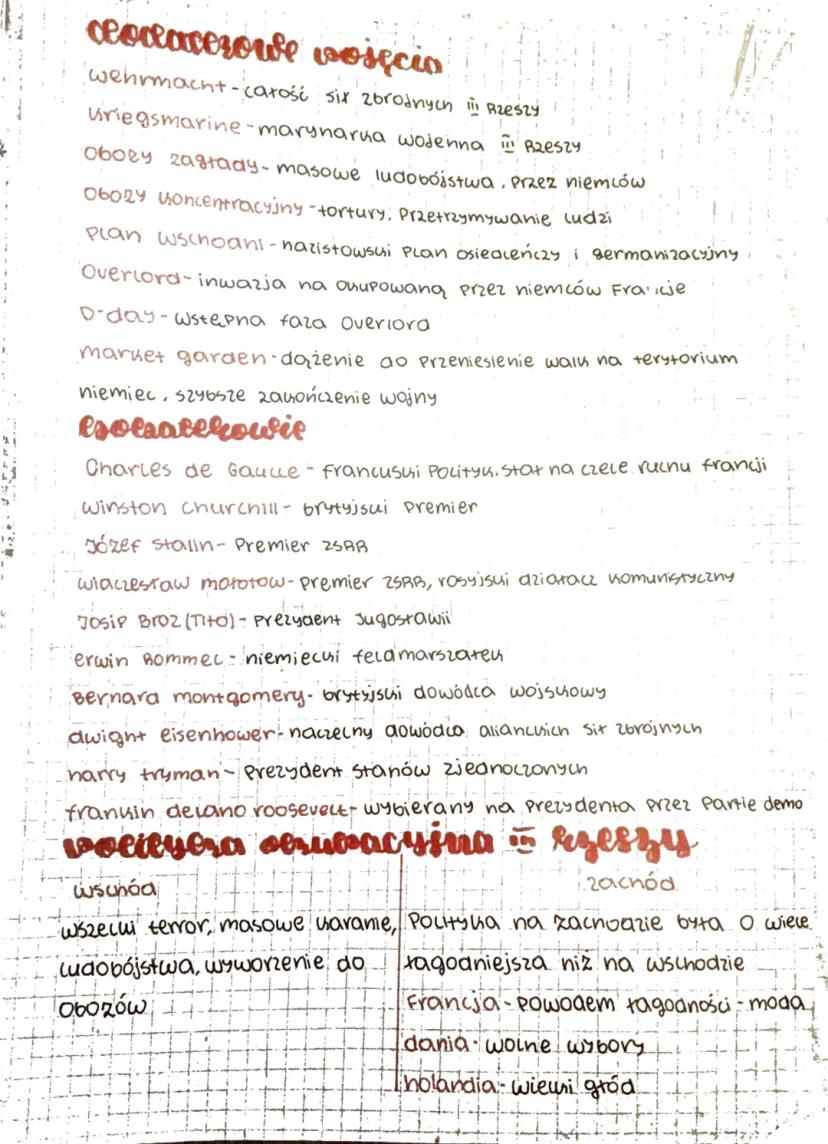 dodatkowe pojęcia
wehrmacht - całość sił zbrojnych III Rzeszy
kriegsmarine - marynarka wojenna III Rzeszy
Obozy zagłady - masowe ludobójstwa, przez niemców
Obozy koncentracyjny - tortury, przetrzymywanie ludzi
plan wschodni - nazistowski plan osiedleńczy i germanizacyjny
Overlord - inwazja na okupowaną przez niemców Francję
D-day - wstępna faza Overlord
market garden - dążenie do przeniesienie walk na terytorium
niemiec, szybsze zakończenie wojny
Charles de Gaulle - francuski polityk. stał na czele ruchu francji
winston churchill - brytyjski premier
Józef Stalin - premier ZSRR
wiaczesław mołotow - premier ZSRR, rosyjski działacz komunistyczny
Josip Broz (Tito) - prezydent Jugosławii
erwin Rommel - niemiecki feldmarszałek
Bernard montgomery - brytyjski dowódca wojskowy
dwight eisenhower - naczelny dowódca aliankich sił zbrojnych
harry tryman - prezydent stanów zjednoczonych
franklin delano roosevelt - wybierany na prezydenta przez partie demo
polityka okupacyjna III Rzeszy
wschód
zachód
wszelki terror, masowe karanie,
ludobójstwa, wyworzenie do
obozów
Polityka na zachodzie była o wiele
łagodniejsza niż na wschodzie
Francja - powodem łagodności - moda
dania - wolne wybory
holandia - wielki głód